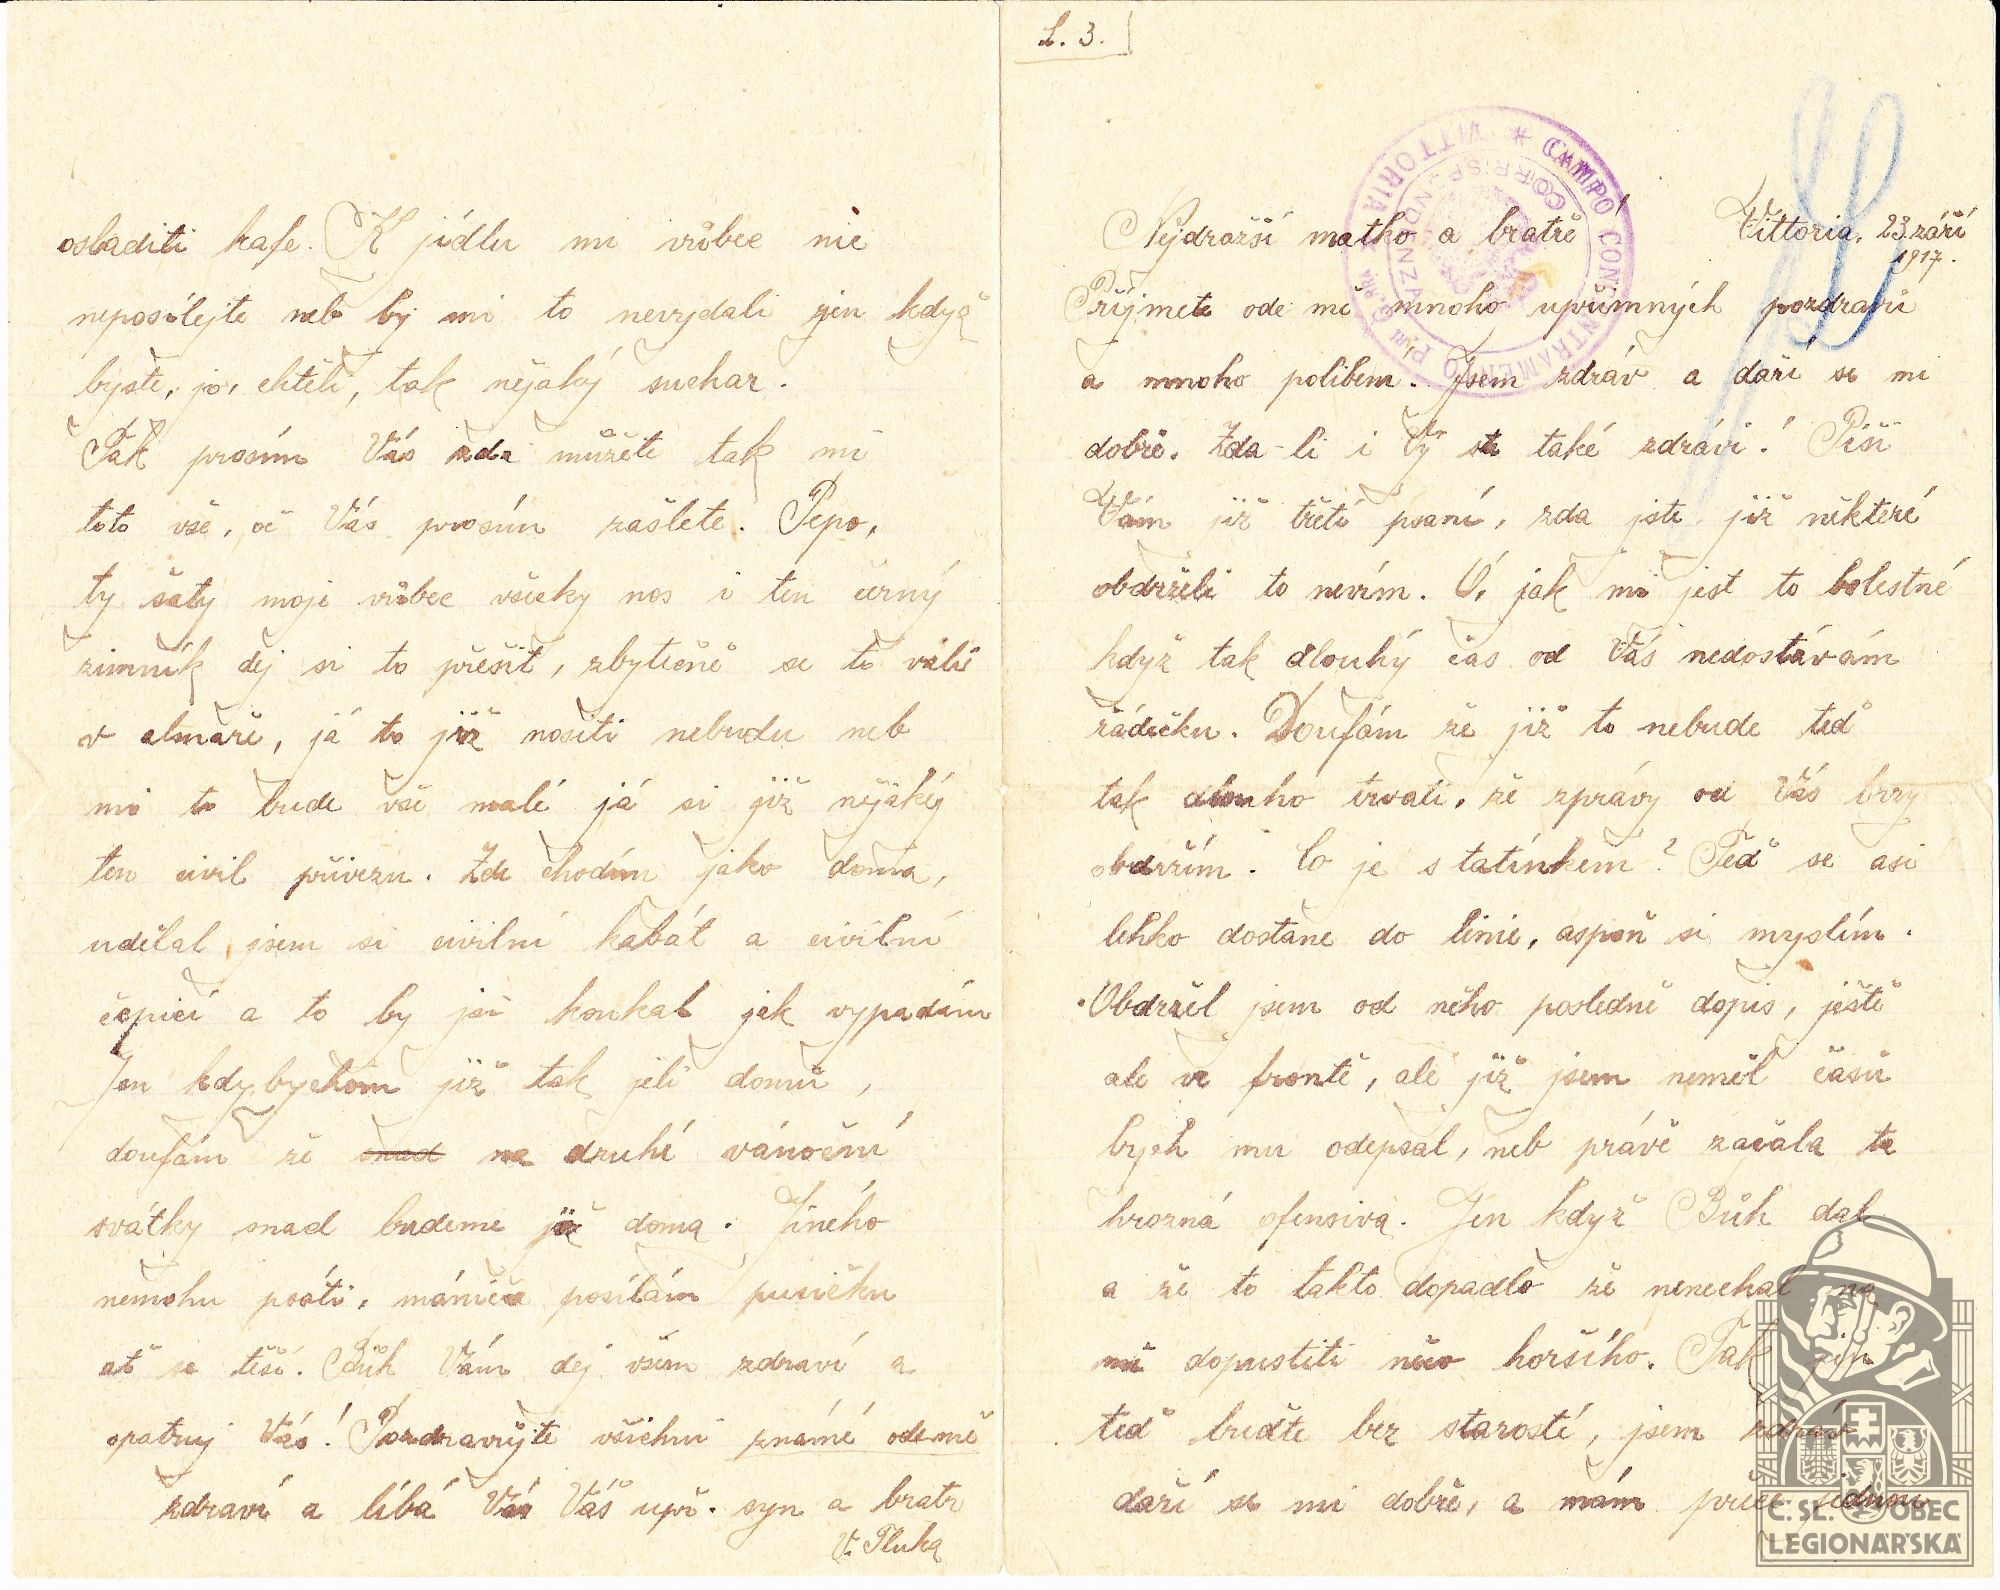 L. 3.
Nejdražší matko a bratře
Vittoria, 23. září
1917.
Příjmete ode mě mnoho upřímných pozdravů
a mnoho políbení. Jsem zdráv a daří se mi
dobře. Zda-li i Vy ste také zdrávi! Píši
Vám již třetí psaní, zda jste již některé
obdrželi to nevím. Ó, jak mi jest to bolestné
když tak dlouhý čas od Vás nedostávám
řádečku. Doufám že již to nebude teď
tak dlouho trvati, že zprávy od Vás brzy
obdržím. Co je s tatínkem? Teď se asi
lehko dostane do linie, aspoň si myslím.
Obdržel jsem od něho posledně dopis, ještě
ale ve frontě, ale již jsem neměl času
bych mu odepsal, neb právě začala ta
hrozná ofensiva. Jen když Bůh dal
a že to takto dopadlo že nenechal na
mě dopustiti něco horšího. Tak jen
teď buďte bez starostí, jsem zdráv
daří se mi dobře, a mám přece jednou
osladiti kafe. K jídlu mi vůbec nic
neposílejte neb by mi to nevydali jen když
byste, jo, chtěli, tak nějaký suchar.
Tak prosím Vás zda můžete tak mi
toto vše, oč Vás prosím zašlete. Pepo,
ty šaty moje vůbec všecky nos i ten černý
zimník dej si to přešít, zbytečně se to válí
v almaře, já to již nositi nebudu neb
mi to bude vše malé já si již nějaký
ten civil přivezu. Zde chodím jako doma,
udělal jsem si civilní kabát a civilní
čepici a to by jsi koukal jak vypadám
Jen kdybychom již tak jeli domů,
doufám že snad na druhé vánoční
svátky snad budeme již doma. Jiného
nemohu psáti, mámiče posílám pusičku
ať se těší. Bůh Vám dej všem zdraví a
opatruj Vás! Pozdravujte všichni známé odemě
zdraví a líbá Vás Váš upř. syn a bratr
V. Pluka
CAMPO CONCENTRAMENTO P.RI G.RRA VITTORIA
CORRISPONDENZA
Č. SL. OBEC
LEGIONÁŘSKÁ